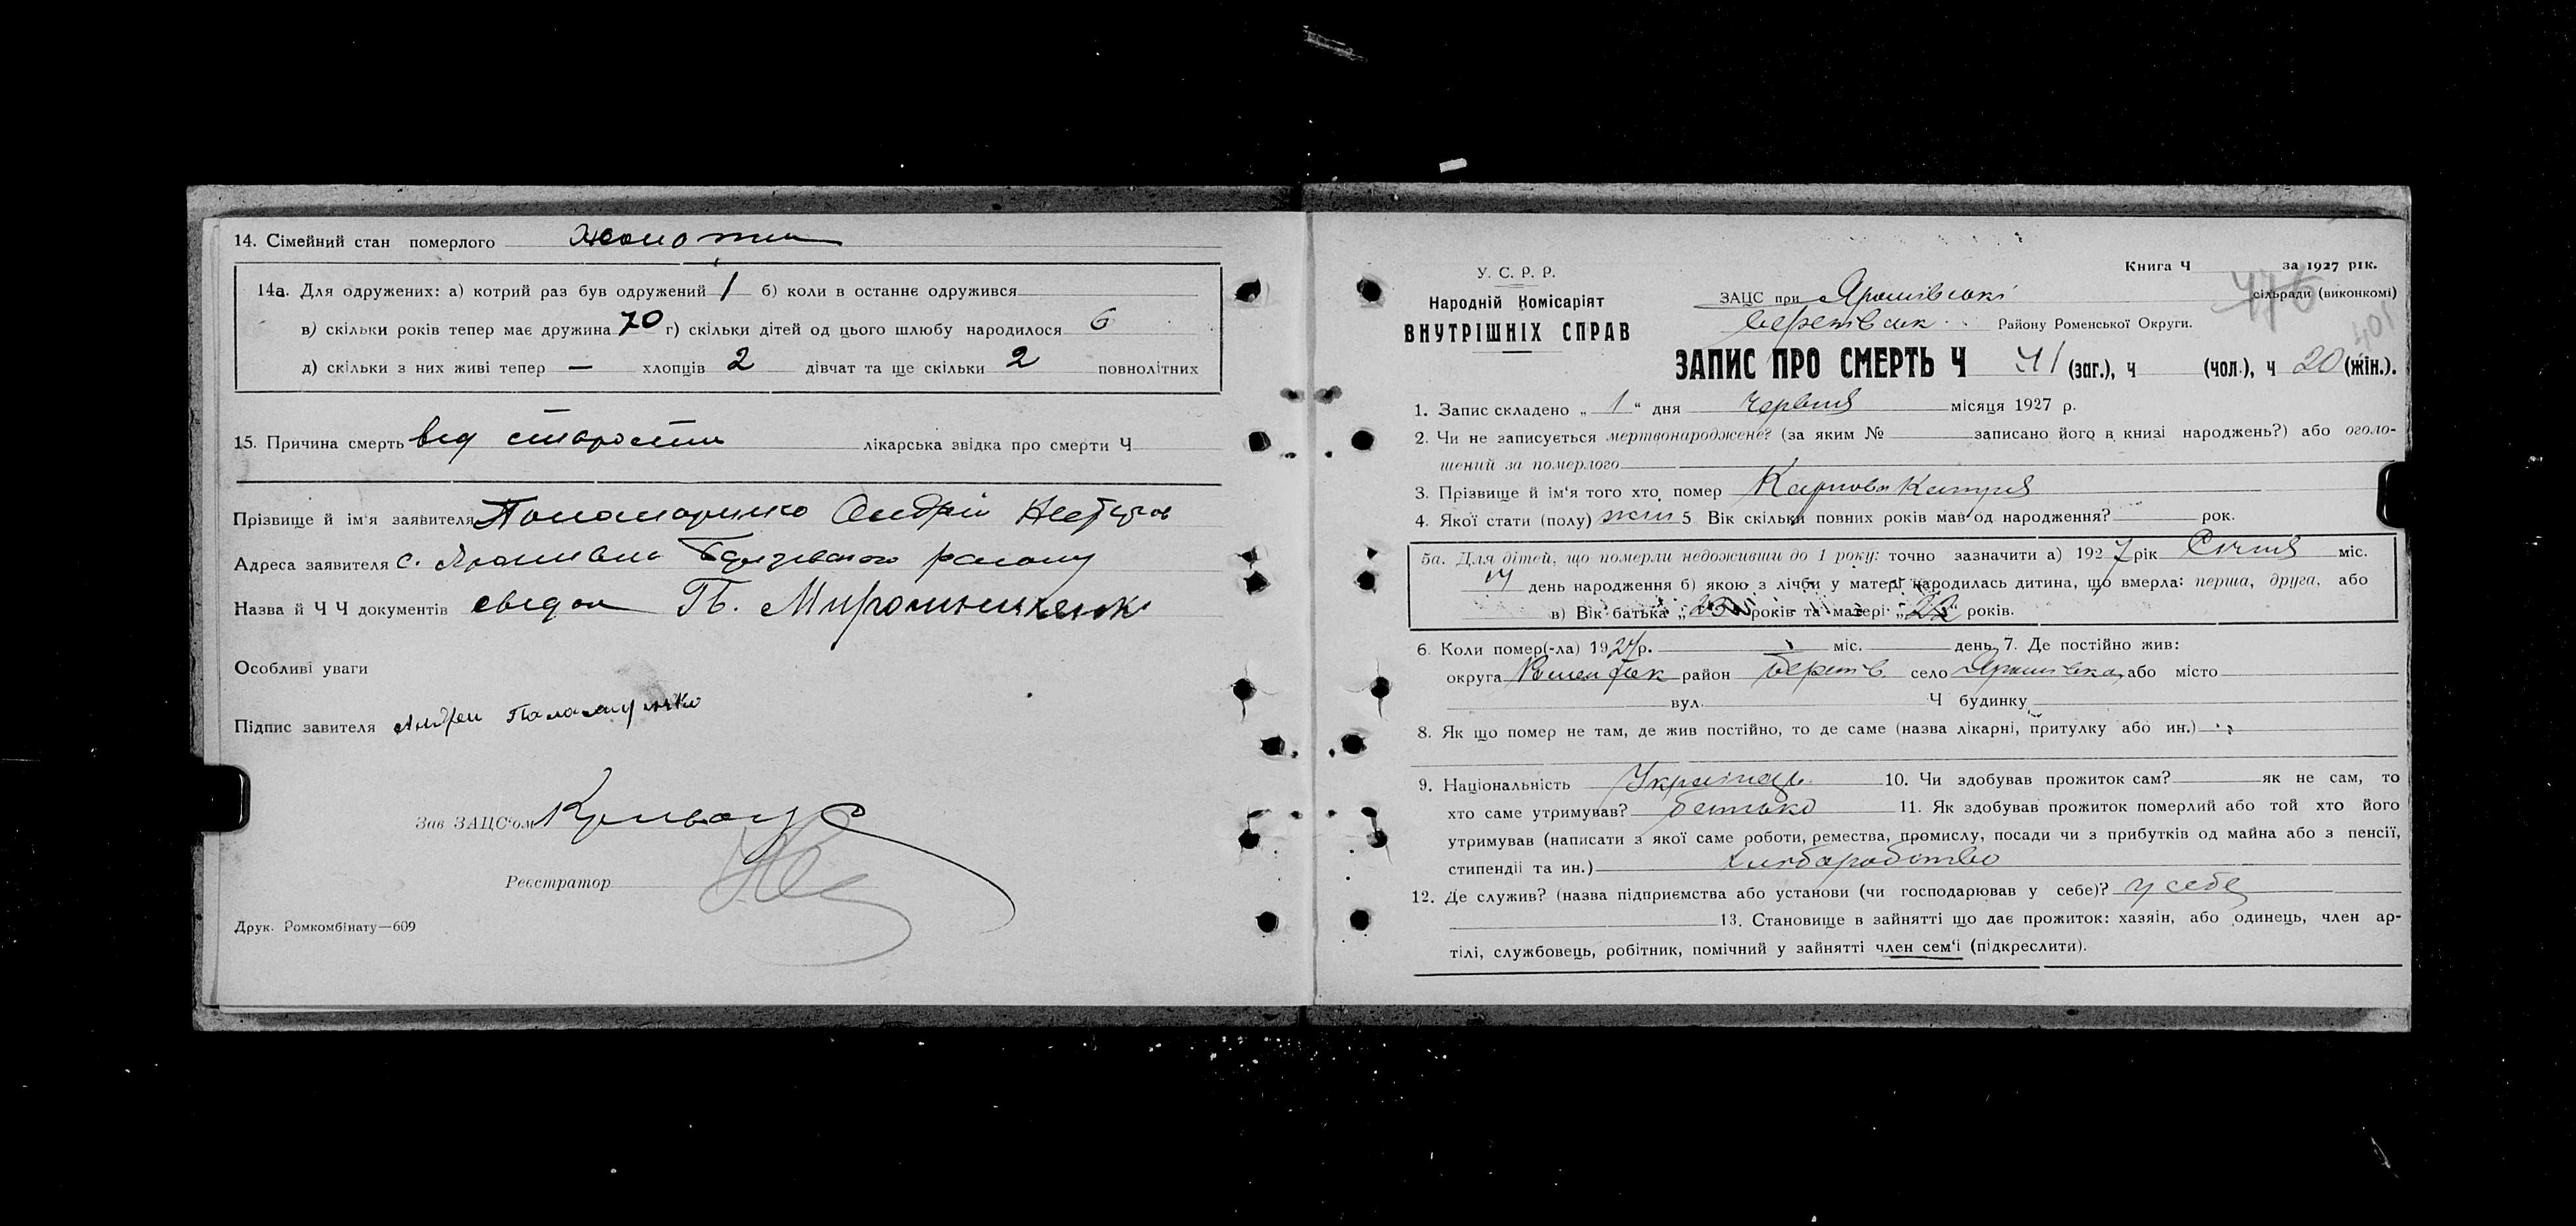 14. Сімейний стан померлого
14а. Для одружених: а) котрий раз був одружений 1 б) коли в останнє одружився
в) скільки років тепер має дружина 70 г) скільки дітей од цього шлюбу народилося 6
д) скільки з них живі тепер — хлопців 2 дівчат та ще скільки 2 повнолітних
15. Причина смерть вед старости лікарська звідка про смерти Ч
Прізвище й ім'я заявителя Андрій
Адреса заявителя с. району
Назва й Ч Ч документів
Особливі уваги
Підпис завителя
Зав ЗАЦС'ом
Реєстратор
Друк. Ромкомбінату—609
Книга Ч за 1927 рік.
476
401
У. С. Р. Р.
Народній Комісаріят
ВНУТРІШНІХ СПРАВ
ЗАЦС при Ярошівські сільради (виконкомі)
Району Роменської Округи.
ЗАПИС ПРО СМЕРТЬ Ч 41 (заг.), ч (чол.), ч 20 (жін.).
1. Запис складено „ 1 “ дня Червня місяця 1927 р.
2. Чи не записується мертвонароджене? (за яким № записано його в книзі народжень?) або оголо-
шений за померлого
3. Прізвище й ім'я того хто помер Карпова Катря
4. Якої стати (полу) жін 5 Вік скільки повних років мав од народження? рок.
5а. Для дітей, що померли недоживши до 1 року: точно зазначити а) 1927 рік Січня міс.
день народження б) якою з лічби у матері народилась дитина, що вмерла: перша, друга, або
в) Вік батька „ “ років та матері „22“ років.
6. Коли помер(-ла) 1927 р. міс. день 7. Де постійно жив:
округа район село Ярошівка або місто
вул. Ч будинку
8. Як що помер не там, де жив постійно, то де саме (назва лікарні, притулку або ин.)
9. Національність Українець 10. Чи здобував прожиток сам? як не сам, то
хто саме утримував? батько 11. Як здобував прожиток померлий або той хто його
утримував (написати з якої саме роботи, ремества, промислу, посади чи з прибутків од майна або з пенсії,
стипендії та ин.) хліборобство
12. Де служив? (назва підприємства або установи (чи господарював у себе)? у себе
13. Становище в зайнятті що дає прожиток: хазяїн, або одинець, член ар-
тілі, службовець, робітник, помічний у зайнятті член сем'ї (підкреслити).